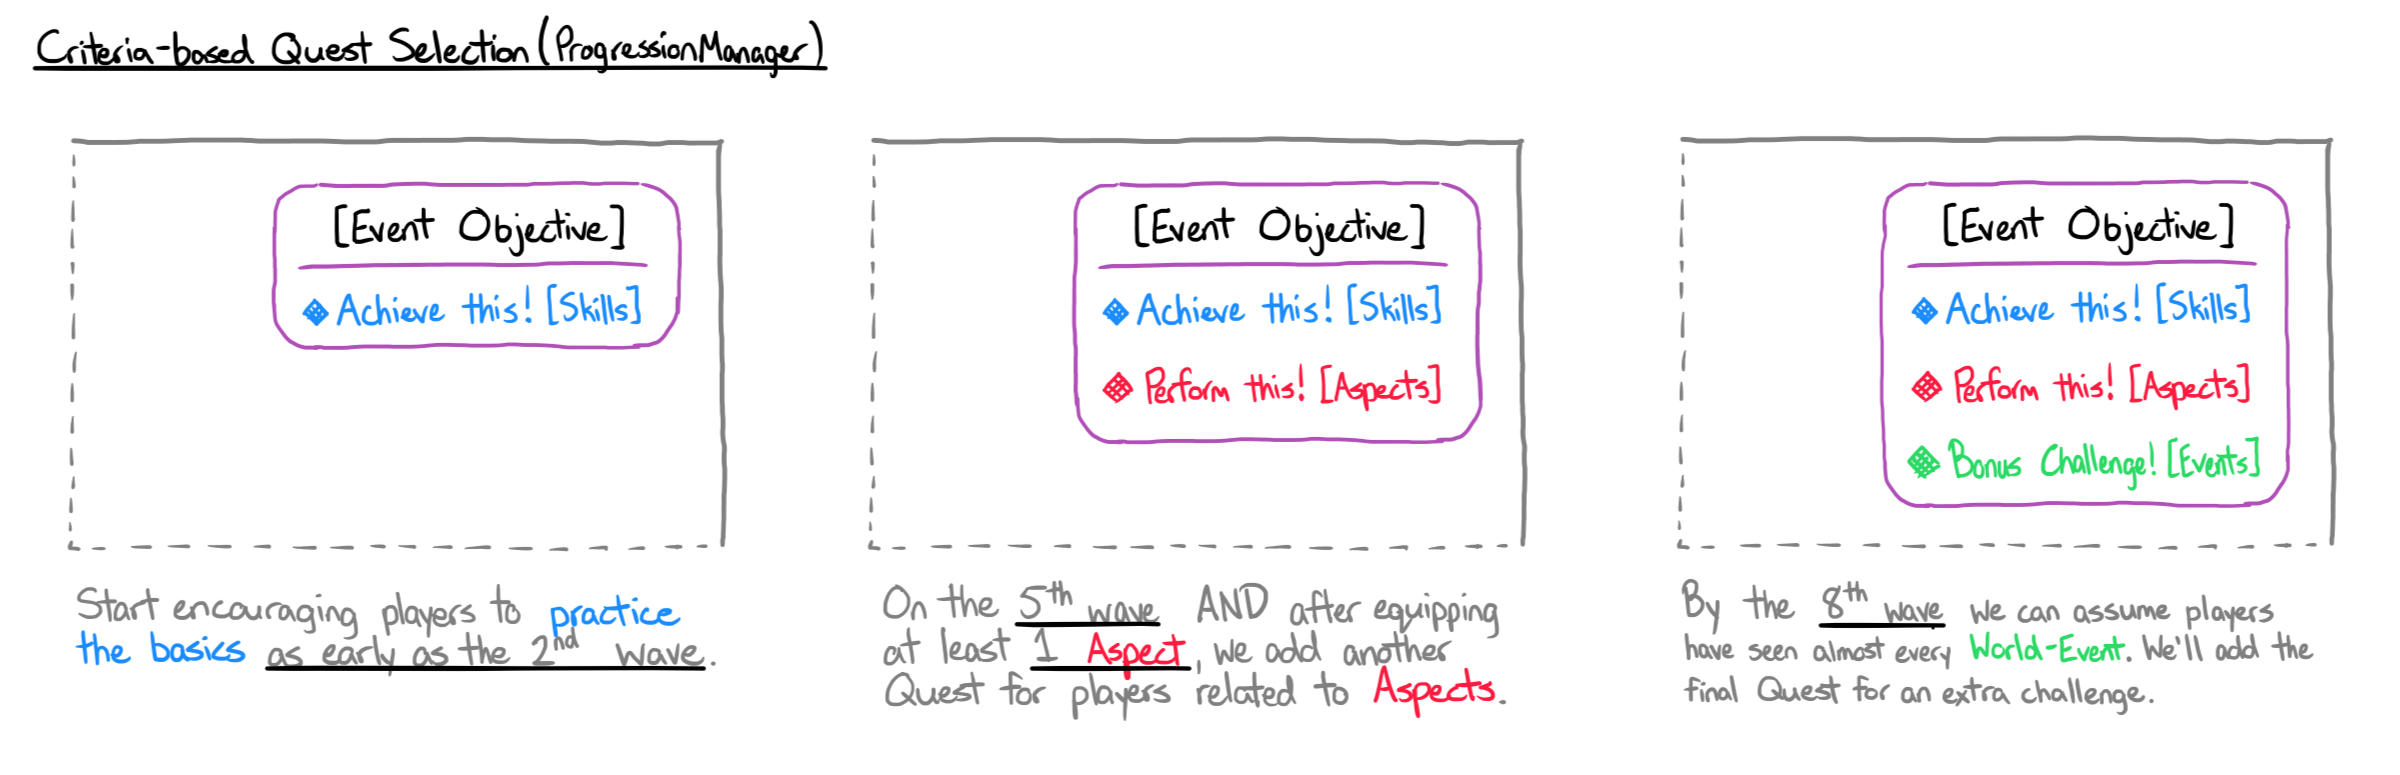 Criteria-based Quest Selection (ProgressionManager)
[Event Objective]
Achieve this! [Skills]
Start encouraging players to practice
the basics as early as the 2nd wave.
[Event Objective]
Achieve this! [Skills]
Perform this! [Aspects]
On the 5th wave AND after equipping
at least 1 Aspect, we add another
Quest for players related to Aspects.
[Event Objective]
Achieve this! [Skills]
Perform this! [Aspects]
Bonus Challenge! [Events]
By the 8th wave we can assume players
have seen almost every World-Event. We'll add the
final Quest for an extra challenge.